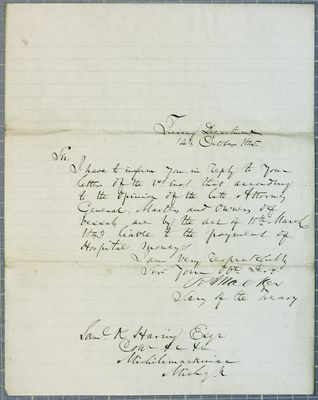 Treasy Department
14th October 1845
Sir
I have to inform you in reply to your
letter of the 1st inst that according
to the opinion of the late Attorney
General, Masters and Owners of
vessels are by the act of 1st March
1843 liable to the payment of
Hospital money
I am very respectfully
Your Obt
Secy of the Treasy
Saml. K Haring Esqr
&c &c
Michilimackinac
Michg